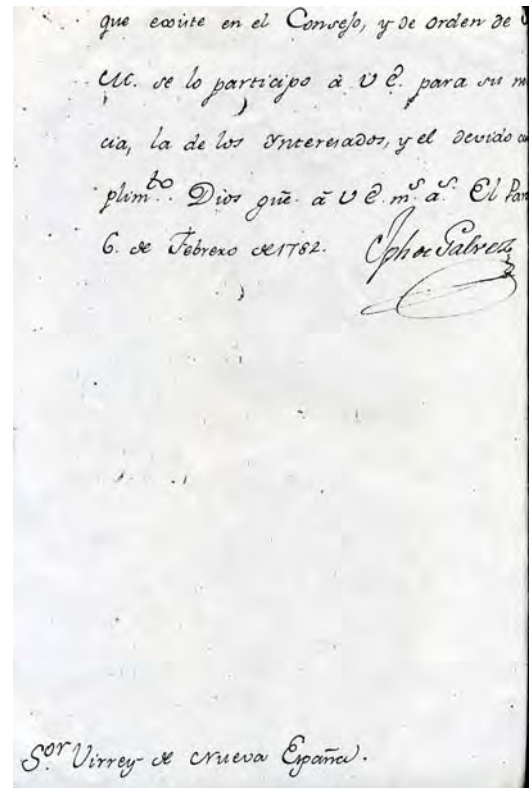 que existe en el Consejo, y de orden de
M. se lo participo à V E. para su
cia, la de los Ynteresados, y el devido
plim.to Dios gũe. à V E. m.s a.s El Par
6. de Febrero de 1782. Jph de Galvez
S.or Virrey de Nueva España.